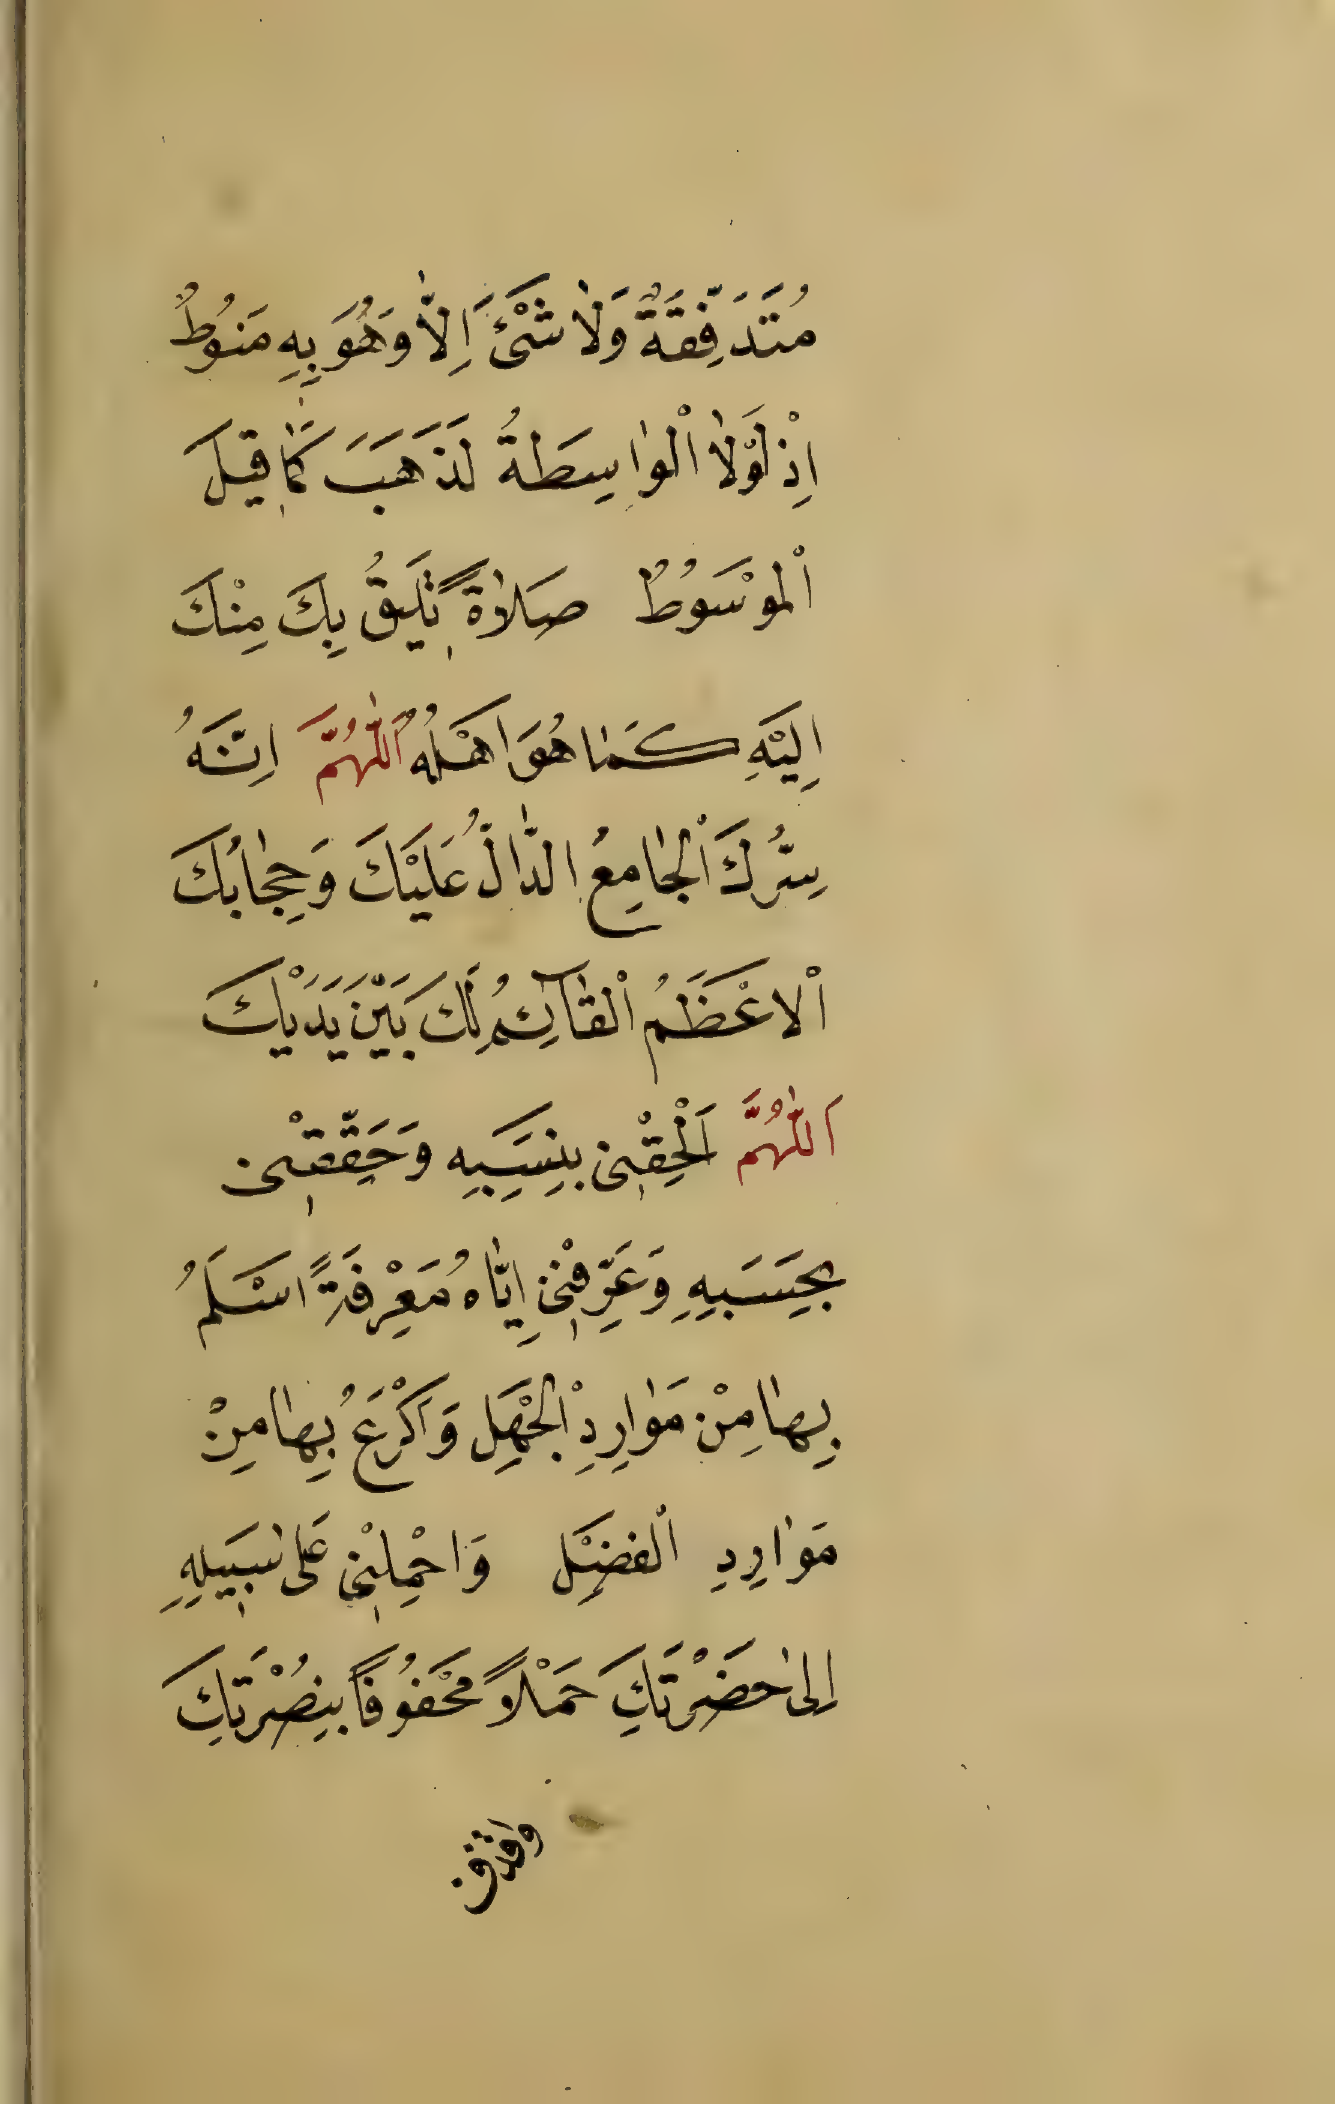 مُتَدَفِّقَةٌ وَلَا شَيْئَ اِلَّا وَهُوَ بِهِ مَنُوطٌ
اِذْ لَوْلَا الْوَاسِطَةُ لَذَهَبَ كَمَا قِيلَ
الْمَوْسُوطُ صَلَاةً تَلِيقُ بِكَ مِنْكَ
اِلَيْهِ كَمَا هُوَ اَهْلُهُ اَللّٰهُمَّ اِنَّهُ
سِرُّكَ الْجَامِعُ الدَّالُّ عَلَيْكَ وَحِجَابُكَ
الْاَعْظَمُ الْقَآئِمُ لَكَ بَيْنَ يَدَيْكَ
اَللّٰهُمَّ اَلْحِقْنِى بِنَسَبِهِ وَحَقِّقْنِى
بِحَسَبِهِ وَعَرِّفْنِى اِيَّاهُ مَعْرِفَةً اَسْلَمُ
بِهَا مِنْ مَوَارِدِ الْجَهْلِ وَاَكْرَعُ بِهَا مِنْ
مَوَارِدِ الْفَضْلِ وَاحْمِلْنِى عَلٰى سَبِيلِهِ
اِلٰى حَضْرَتِكَ حَمْلًا مَحْفُوفًا بِنُصْرَتِكَ
واقذف